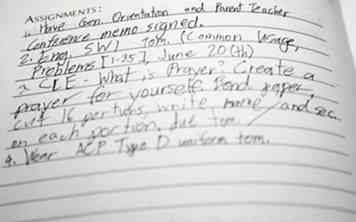 ASSIGNMENTS:
1. Have Gen. Orientation and Parent Teacher
Conference memo signed.
2. Eng. SW1 tom. (Common Usage,
Problems [1-25], June 20(th)
3. CLE - What is Prayer? Create a
prayer for yourself. Bond paper,
cut 16 portions, write name / and sec.
on each portion, due tom.
4. Wear ACP Type D uniform tom.